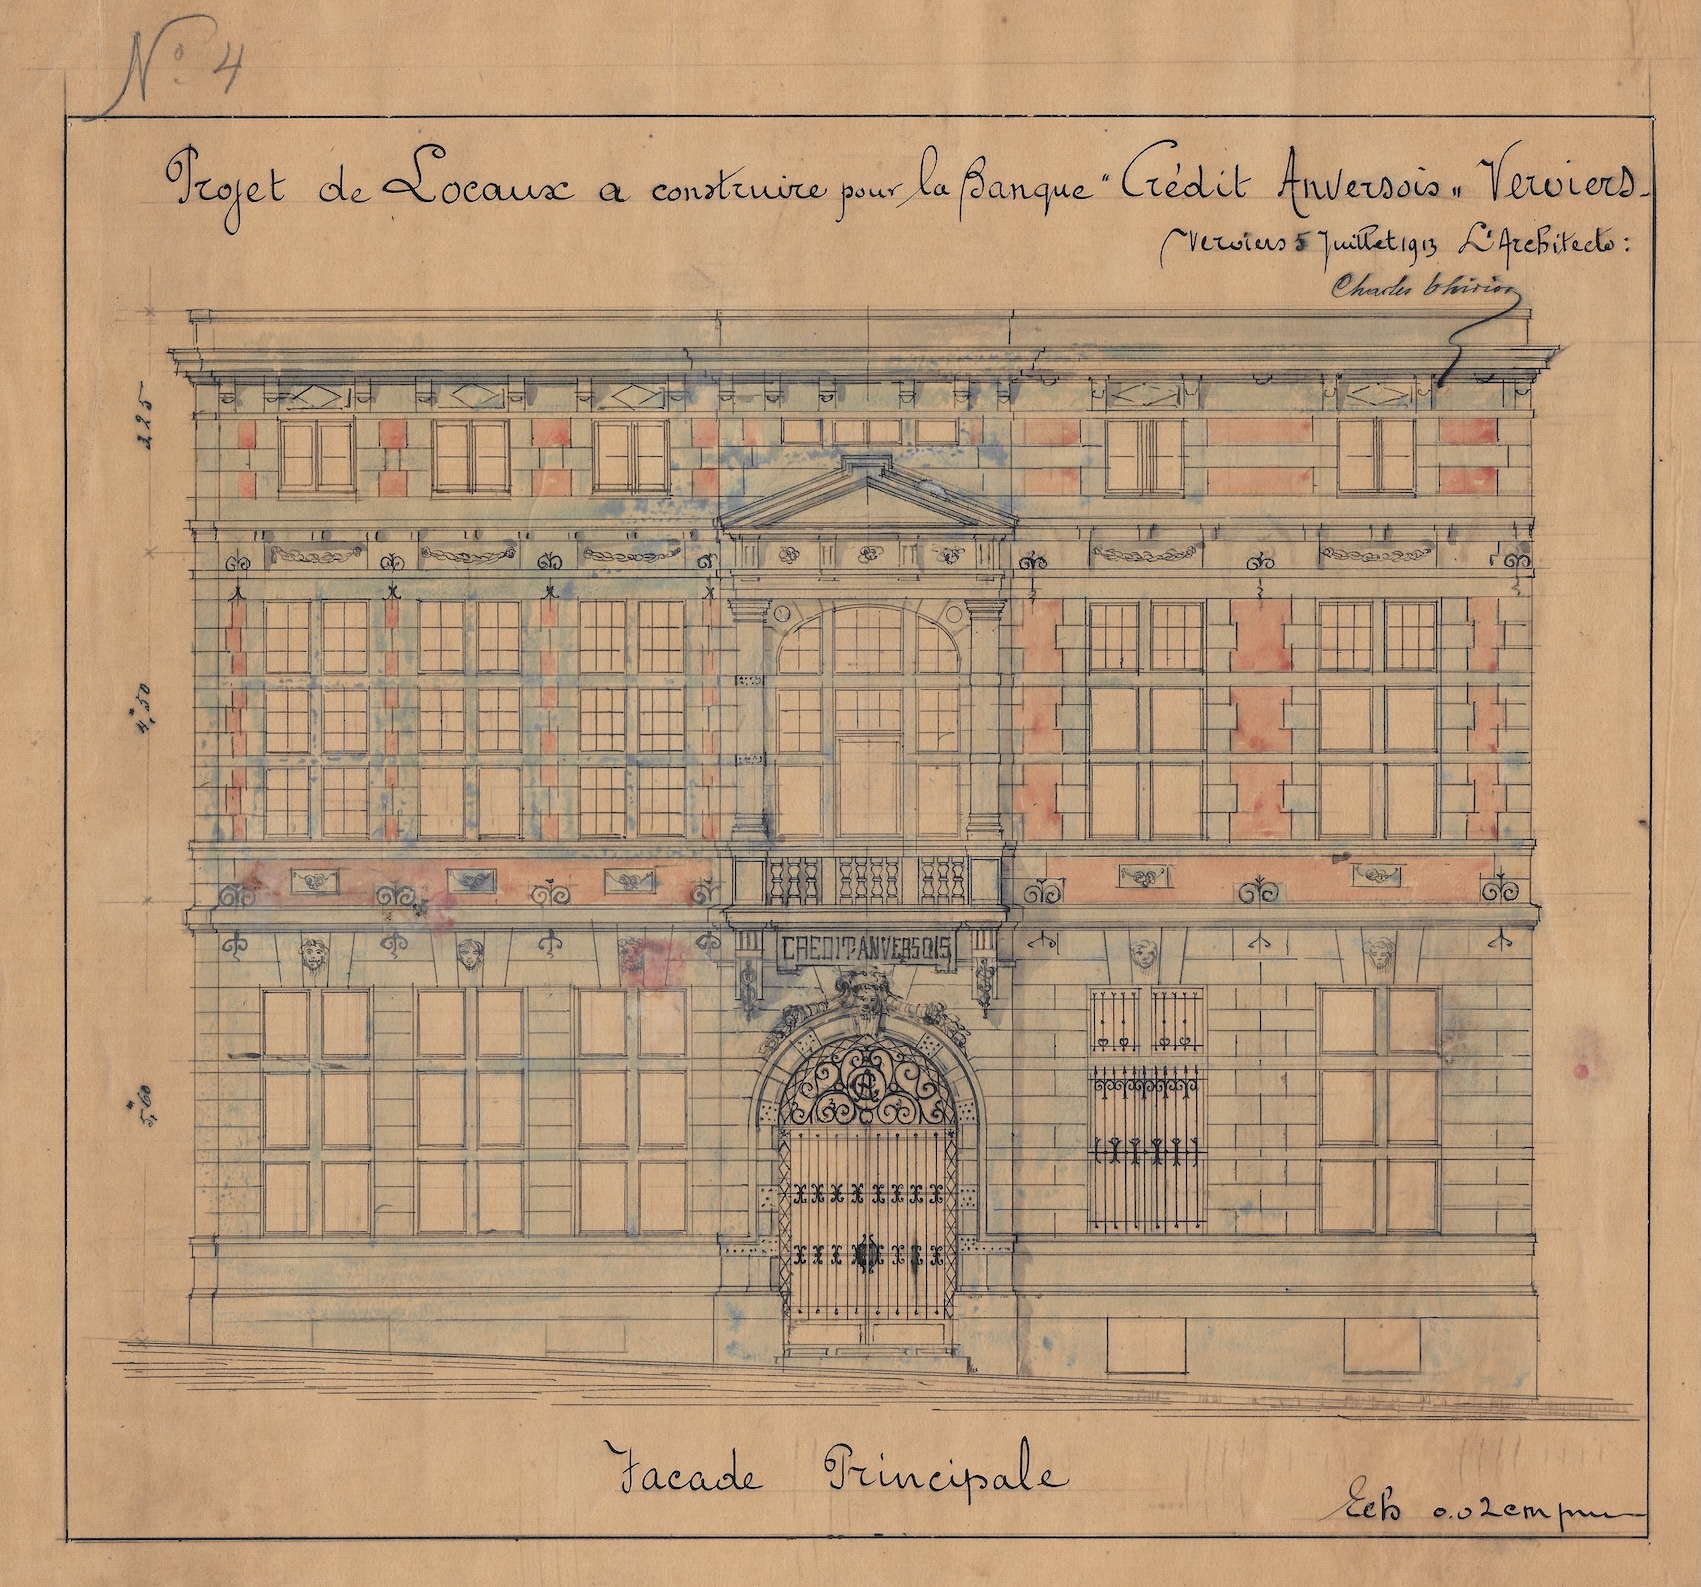 Nº 4
Projet de Locaux a construire pour la Banque "Crédit Anversois" Verviers-
Verviers 5 Juillet 1913 L'Architecte:
Charles Thirion
2.25
4m,50
CREDIT·ANVERSOIS
CA
5m,60
Facade Principale
Ech 0.02cm pm